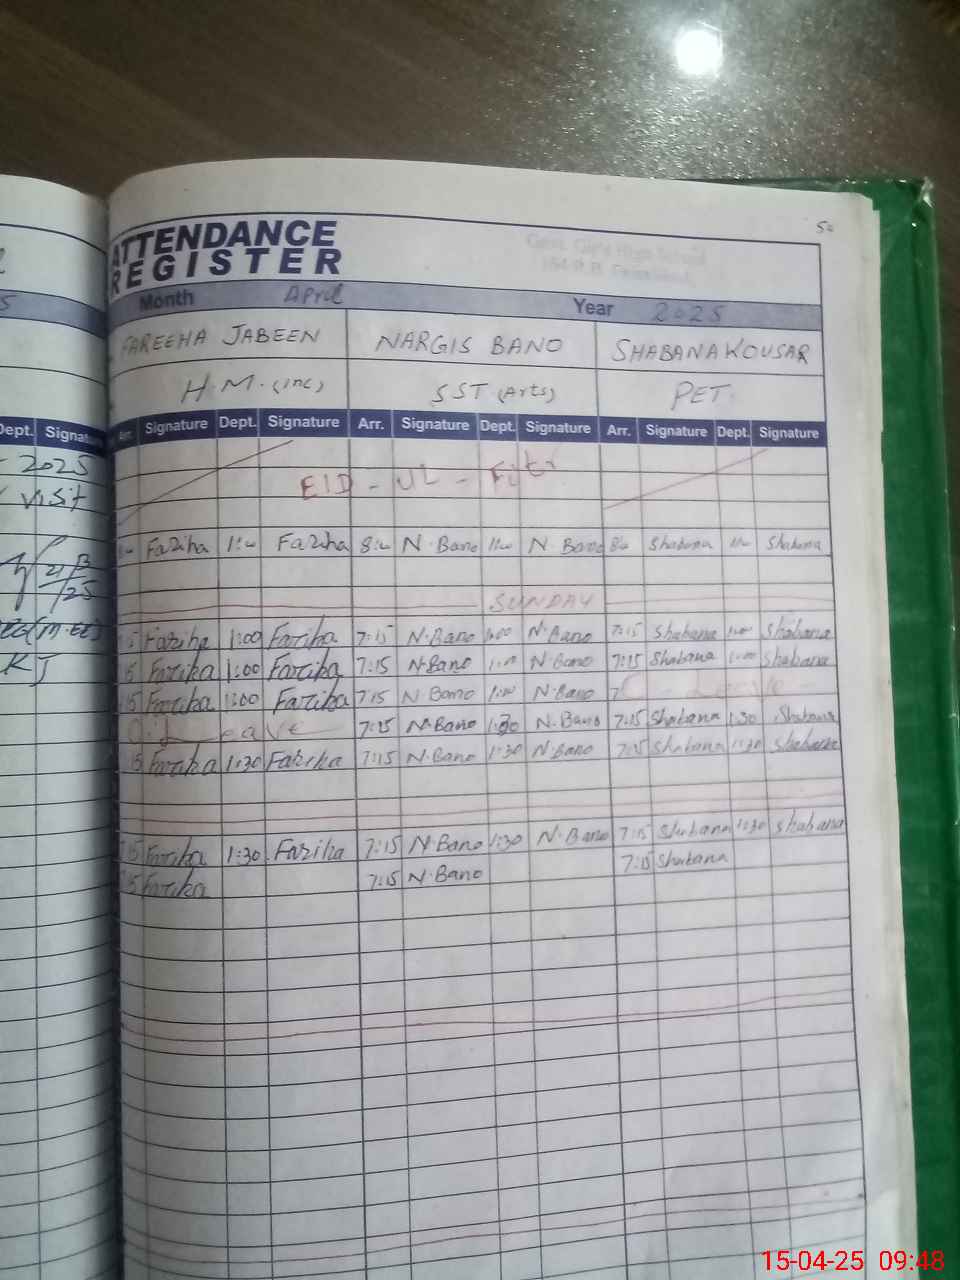 50
ATTENDANCE
REGISTER
Govt. Girls High School
Month April Year 2025
FAREEHA JABEEN NARGIS BANO SHABANA KOUSAR
H.M.(Inc) SST (Arts) PET.
Dept. Signature Arr. Signature Dept. Signature Arr. Signature Dept. Signature Arr. Signature Dept. Signature
2025
visit
EID - UL - Fitr
Fariha Fariha N.Bano N.Bano Shabana Shabana
SUNDAY
Fariha 1:00 Fariha 7:15 N.Bano 1:00 N.Bano 7:15 Shabana 1:00 Shabana
15 Fariha 1:00 Fariha 7:15 N.Bano N.Bano 7:15 Shabana 1:00 Shabana
15 Fariha 1:00 Fariha 7:15 N.Bano N.Bano 7 C - Leave -
Leave 7:15 N.Bano 1:30 N.Bano 7:15 Shabana 1:30 Shabana
15 Fariha 1:30 Fariha 7:15 N.Bano 1:30 N.Bano 7:15 Shabana 1:30 Shabana
7:15 Fariha 1:30 Fariha 7:15 N.Bano 1:30 N.Bano 7:15 Shabana 1:30 Shabana
7:15 Fariha 7:15 N.Bano 7:15 Shabana
15-04-25 09:48